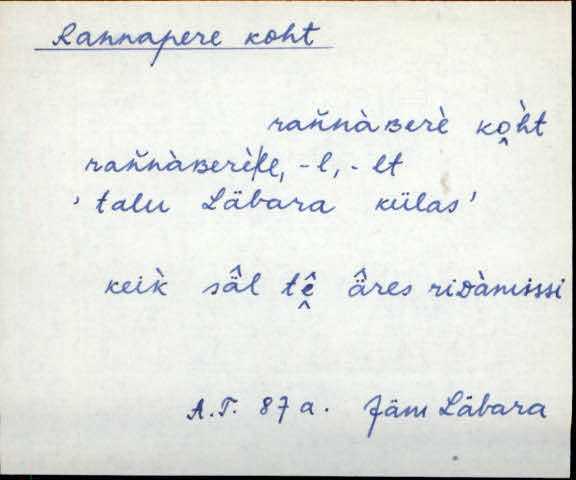 Rannapere koht
rañ̆nàʙerè ko̭h̀t
rañ̆nàʙerè|le, -l, -lt
' talu Läbara külas '
keik̀ sä̂l tḙ̂ ä̂res riᴅàmissi
A.T. 87a. Jäm Läbara